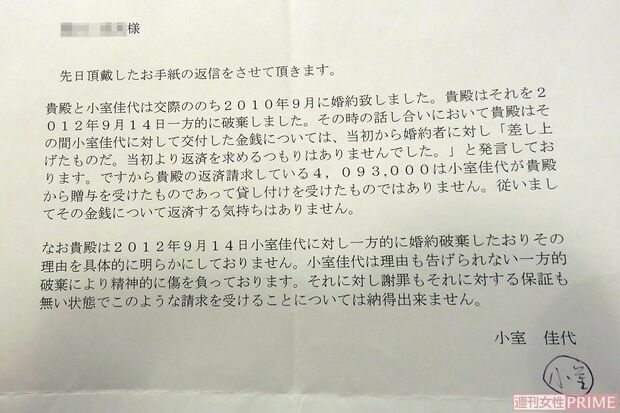 様
先日頂戴したお手紙の返信をさせて頂きます。
貴殿と小室佳代は交際ののち2010年9月に婚約致しました。貴殿はそれを2
012年9月14日一方的に破棄しました。その時の話し合いにおいて貴殿はそ
の間小室佳代に対して交付した金銭については、当初から婚約者に対し「差し上
げたものだ。当初より返済を求めるつもりはありませんでした。」と発言してお
ります。ですから貴殿の返済請求している4,093,000は小室佳代が貴殿
から贈与を受けたものであって貸し付けを受けたものではありません。従いまし
てその金銭について返済する気持ちはありません。
なお貴殿は2012年9月14日小室佳代に対し一方的に婚約破棄したおりその
理由を具体的に明らかにしておりません。小室佳代は理由も告げられない一方的
破棄により精神的に傷を負っております。それに対し謝罪もそれに対する保証も
無い状態でこのような請求を受けることについては納得出来ません。
小室　佳代
小室
週刊女性PRIME